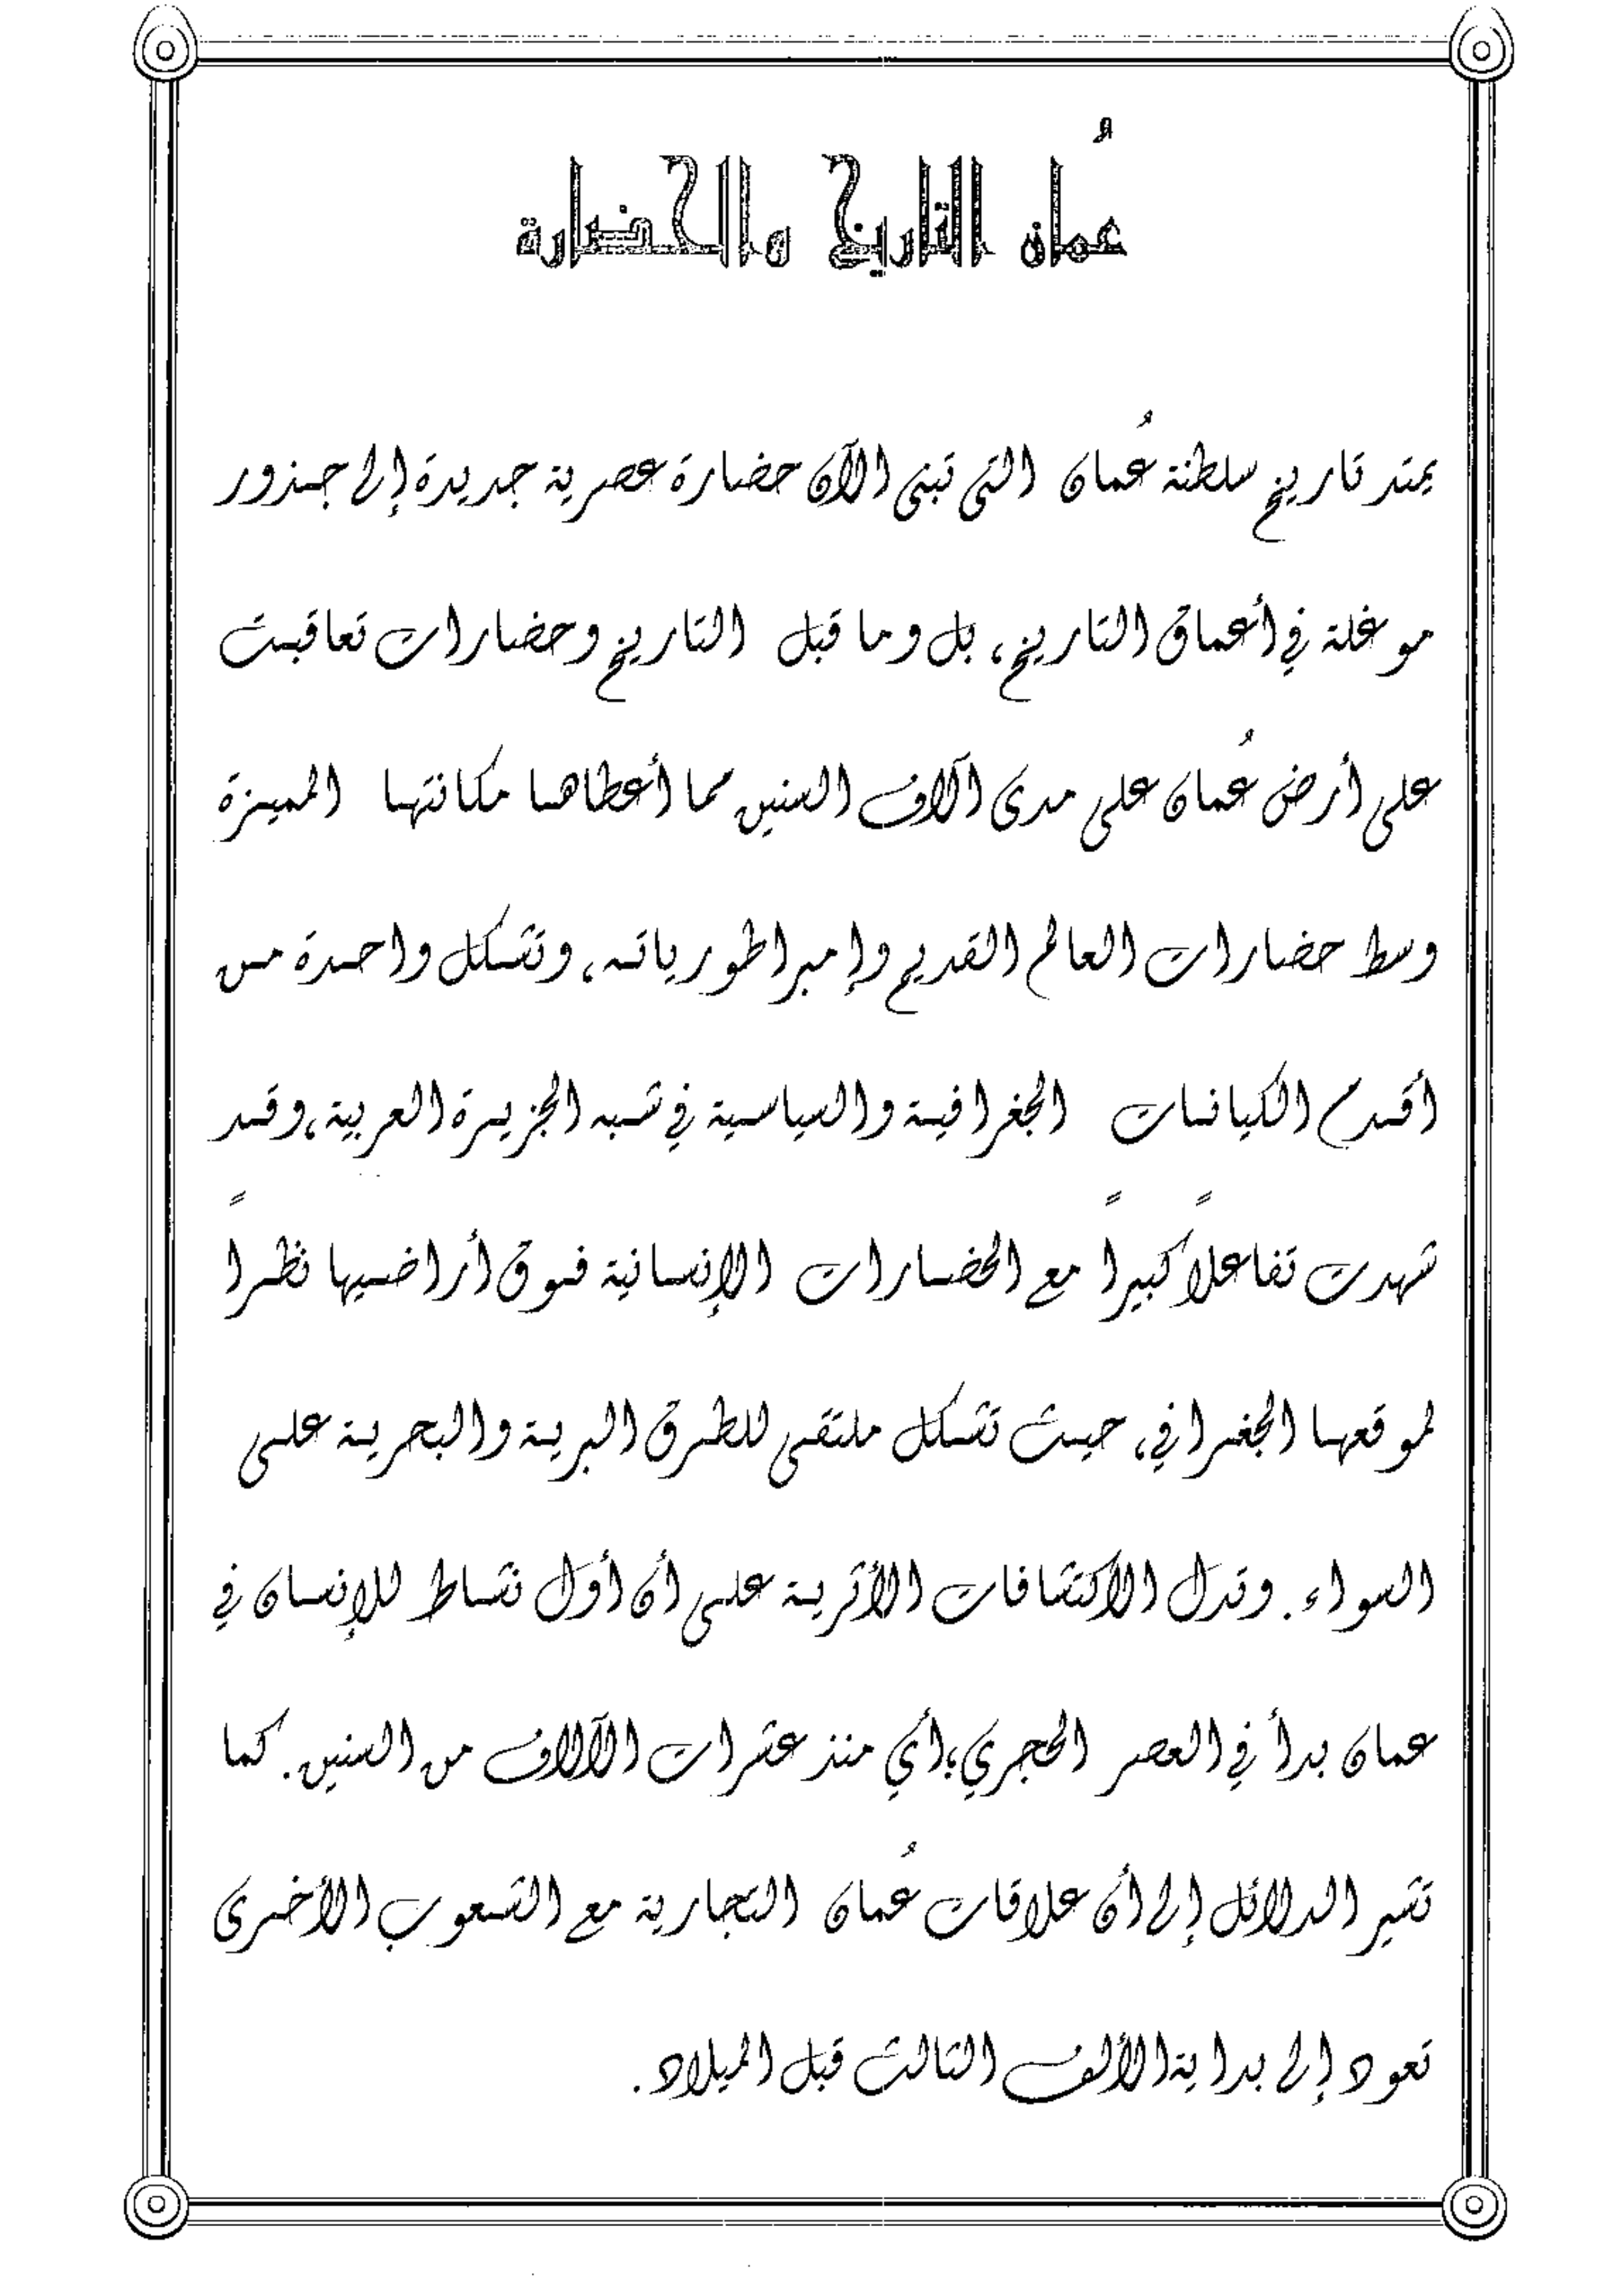 عُمان التاريخ والحضارة
يمتد تاريخ سلطنة عُمان التي تبنى الآن حضارة عصرية جديدة إلى جذور
موغلة في أعماق التاريخ، بل وما قبل التاريخ وحضارات تعاقبت
على أرض عُمان على مدى آلاف السنين مما أعطاها مكانتها المميزة
وسط حضارات العالم القديم وإمبراطورياته، وتشكل واحدة من
أقدم الكيانات الجغرافية والسياسية في شبه الجزيرة العربية، وقد
شهدت تفاعلاً كبيراً مع الحضارات الإنسانية فوق أراضيها نظراً
لموقعها الجغرافي، حيث تشكل ملتقى للطرق البرية والبحرية على
السواء. وتدل الاكتشافات الأثرية على أن أول نشاط للإنسان في
عمان بدأ في العصر الحجري؛ أي منذ عشرات الآلاف من السنين. كما
تشير الدلائل إلى أن علاقات عُمان التجارية مع الشعوب الأخرى
تعود إلى بداية الألف الثالث قبل الميلاد.